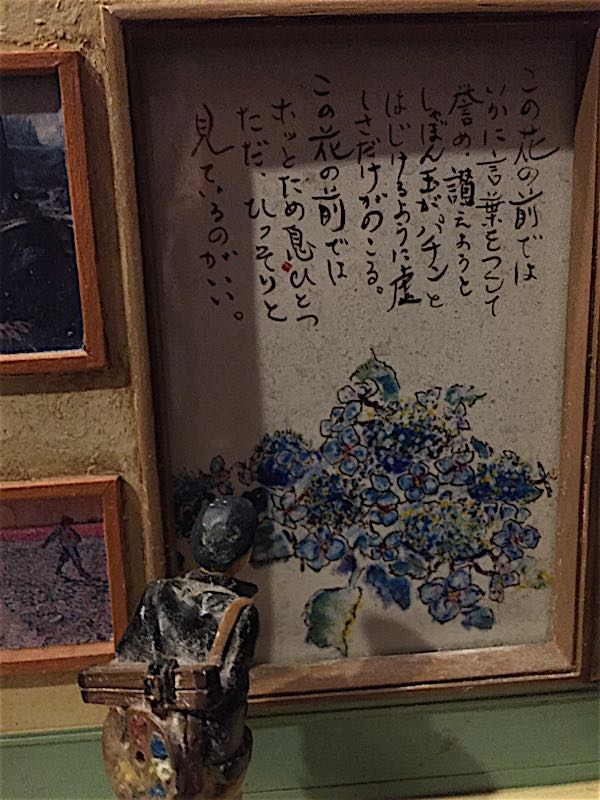 この花の前では
いかに言葉をつくして
誉め、讃えようと
しゃぼん玉がパチンと
はじけるように虚
しさだけがのこる。
この花の前では
ホッとため息ひとつ
ただ、ひっそりと
見ているのがいい。